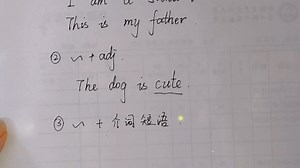 I am a
This is my father
② ~ + adj.
The dog is cute.
③ ~ + 介词短语